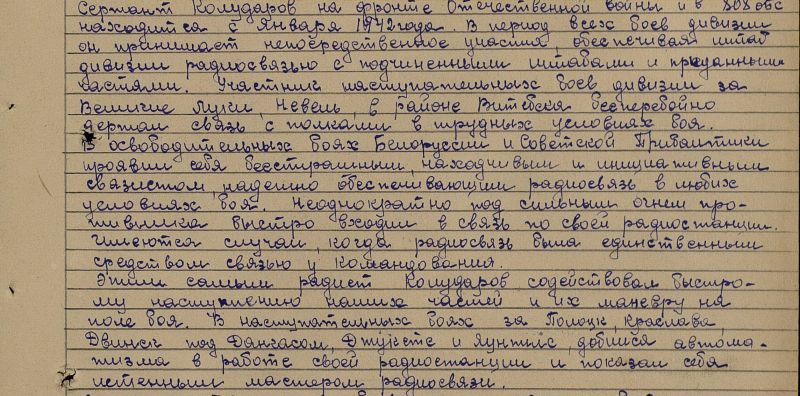 Сержант Колударов на фронте Отечественной войны и в 808 обс
находится с Января 1942 года. В период всех боев дивизии
он принимает непосредственное участие, обеспечивая штаб
дивизии радиосвязью с подчиненными штабами и приданными
частями. Участник наступательных боев дивизии за
Великие Луки, Невель, в районе Витебска бесперебойно
держал связь с полками в трудных условиях боя.
В освободительных боях Белоруссии и Советской Прибалтики
проявил себя бесстрашным, находчивым и инициативным
связистом, надежно обеспечивающим радиосвязь в любых
условиях боя. Неоднократно под сильным огнем про-
тивника быстро входил в связь по своей радиостанции.
Имеются случаи, когда радиосвязь была единственным
средством связью у командования.
Этим самым радист Колударов содействовал быстро-
му наступлению наших частей и их маневру на
поле боя. В наступательных боях за Полоцк, Краслава,
Двинск под Данкасом, и добился автома-
тизма в работе своей радиостанции и показал себя
истенным мастером радиосвязи.